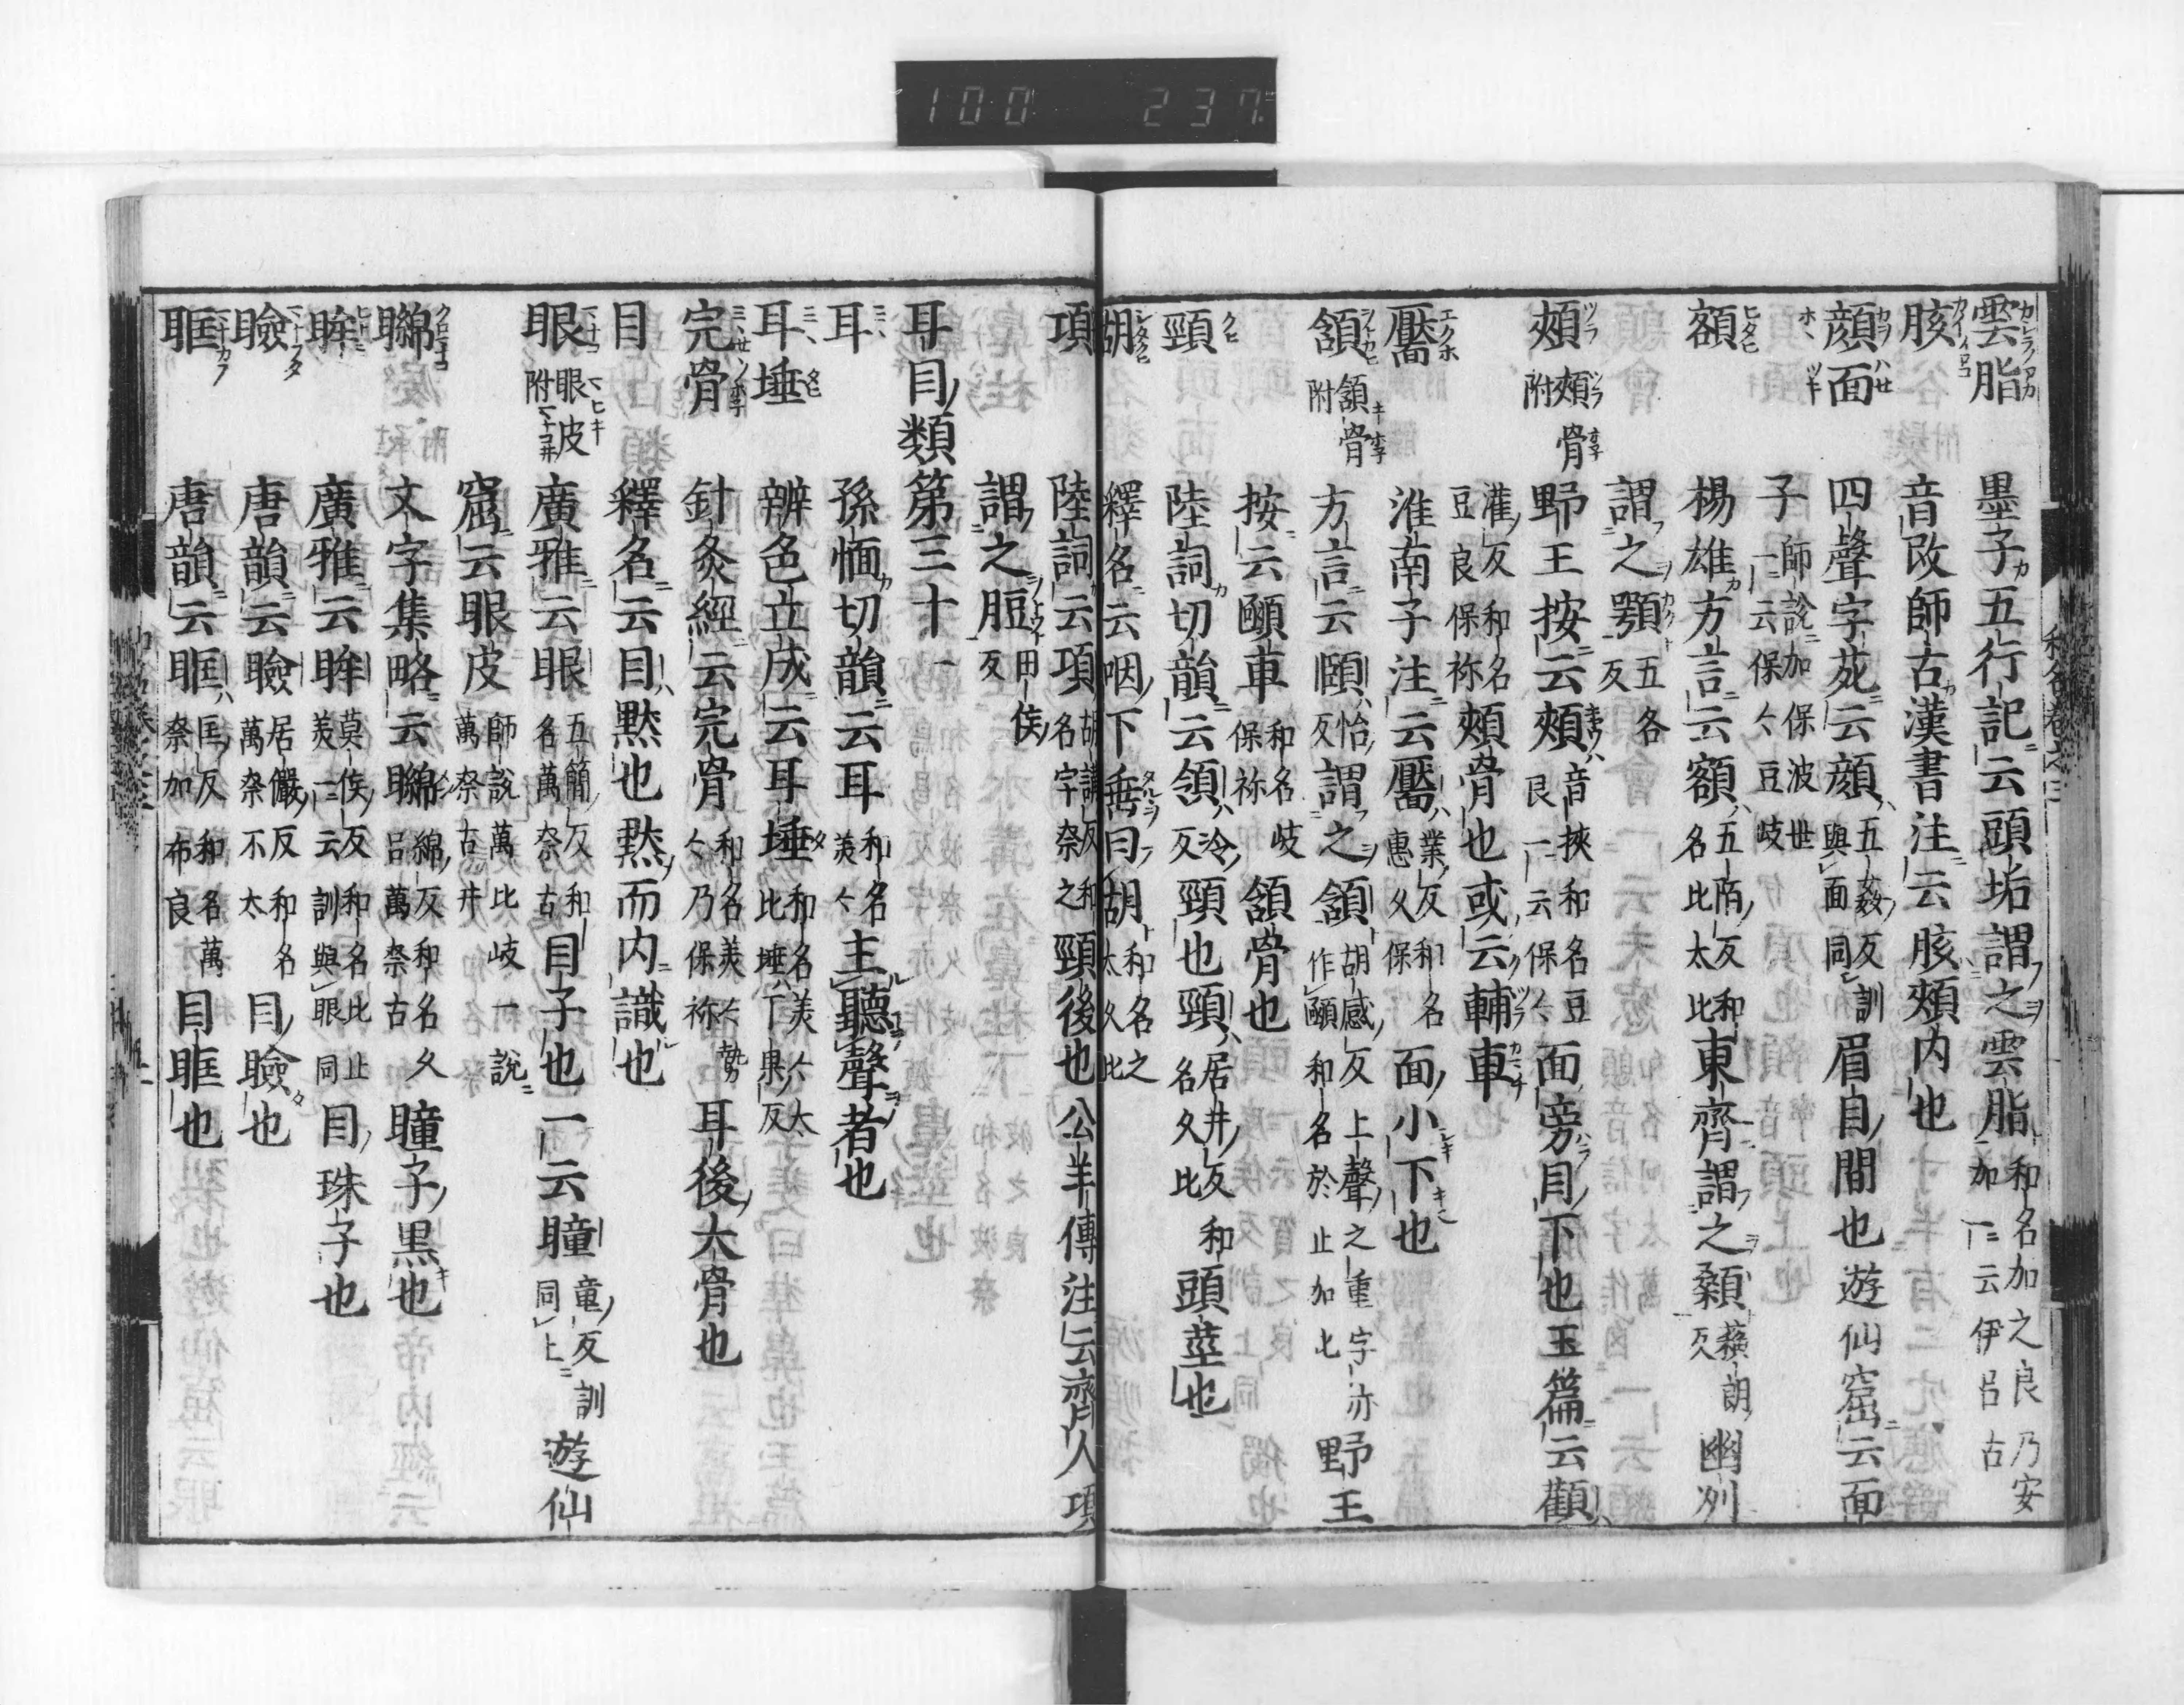 雲脂　墨子五行記云頭垢謂之雲脂 和名加之良乃安加一云伊呂古
胲　音改師古漢書注云胲頰内也
顔面　四聲字苑云顔 五姦反訓與面同 眉目間也遊仙窟云面
子 師說加保波世一云保々豆岐
額　楊雄方言云額 五陌反和名比太比 東齊謂之顙 蘇朗反 幽州
謂之顎 五各反
頰 頰骨附　野王按云頰 音挾和名豆良一云保々 面旁目下也玉篇云顴
灌反和名豆良保祢 頰骨也或云輔車
靨　淮南子注云靨 業反和名惠久保 面小下也
頷 頷骨附　方言云頤 怡反 謂之頷 胡感反上聲之重字亦作顄和名於止加比 野王
按云頤車 和名岐保祢 頷骨也
頸　陸詞切韻云領 冷反 頸也頸 居井反和名久比 頭莖也
胡　釋名云咽下垂曰胡 和名之太久比
項　陸詞云項 胡講反和名宇奈之 頸後也公羊傳注云齊人項
謂之脰 田侯反
耳目類第三十一
耳　孫愐切韻云耳 和名美々 主聽聲者也
耳埵　辨色立成云耳埵 和名美々太比埵丁果反
完骨　針灸經云完骨 和名美々勢々乃保祢 耳後大骨也
目　釋名云目黙也黙而内識也
眼 眼皮附　廣雅云眼 五簡反和名萬奈古 目子也一云瞳 童反訓同上 遊仙
窟云眼皮 師說萬比岐一說萬奈古井
矊　文字集略云矊 綿反和名久呂萬奈古 瞳子黒也
眸　廣雅云眸 莫侯反和名比止美一云訓與眼同 目珠子也
瞼　唐韻云瞼 居儼反和名萬奈不太 目瞼也
眶　唐韻云眶 匡反和名萬奈加布良 目眶也